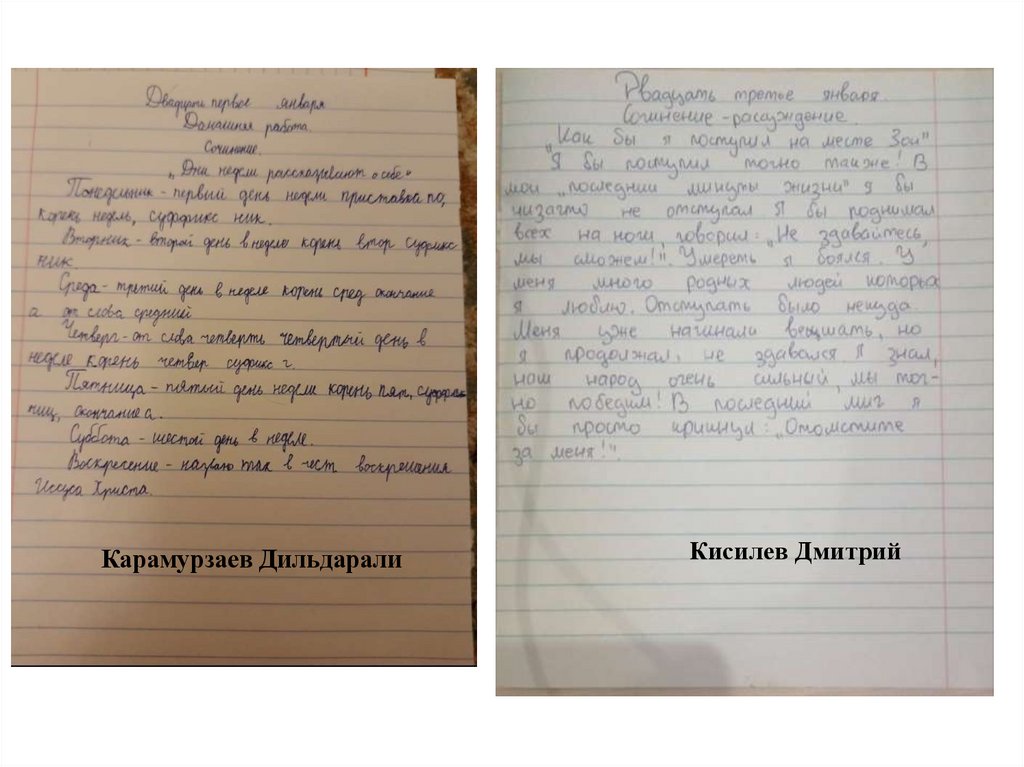 Двадцать первое января
Домашняя работа.
Сочинение.
„Дни недели рассказывают о себе"
Понедельник - первый день недели приставка по,
корень недель, суффикс ник.
Вторник - второй день в неделе корень втор суфикс
ник.
Среда - третий день в неделе корень сред окончание
а от слова средний
Четверг - от слова четверть четвертый день в
неделе корень четвер суфикс г.
Пятница - пятый день недели корень пят, суффикс
ниц, окончание а.
Суббота - шестой день в неделе.
Воскресение - назвали так в чест воскрешания
Иссуса Христа.
Карамурзаев Дильдарали
Двадцать третье января.
Сочинение - расуждение.
„Как бы я поступил на месте Зои"
Я бы поступил точно также! В
мои „последнии минуты жизни" я бы
низагто не отступал Я бы поднимал
всех на ноги, говорил: „Не здавайтесь,
мы сможем!". Умереть я боялся. У
меня много родных людей которых
я люблю. Отступать было некуда.
Меня уже начинали вещшать, но
я продолжал, не здавался Я знал,
наш народ очень сильный, мы точ-
но победим! В последний миг я
бы просто крикнул: „Отомстите
за меня!".
Кисилев Дмитрий